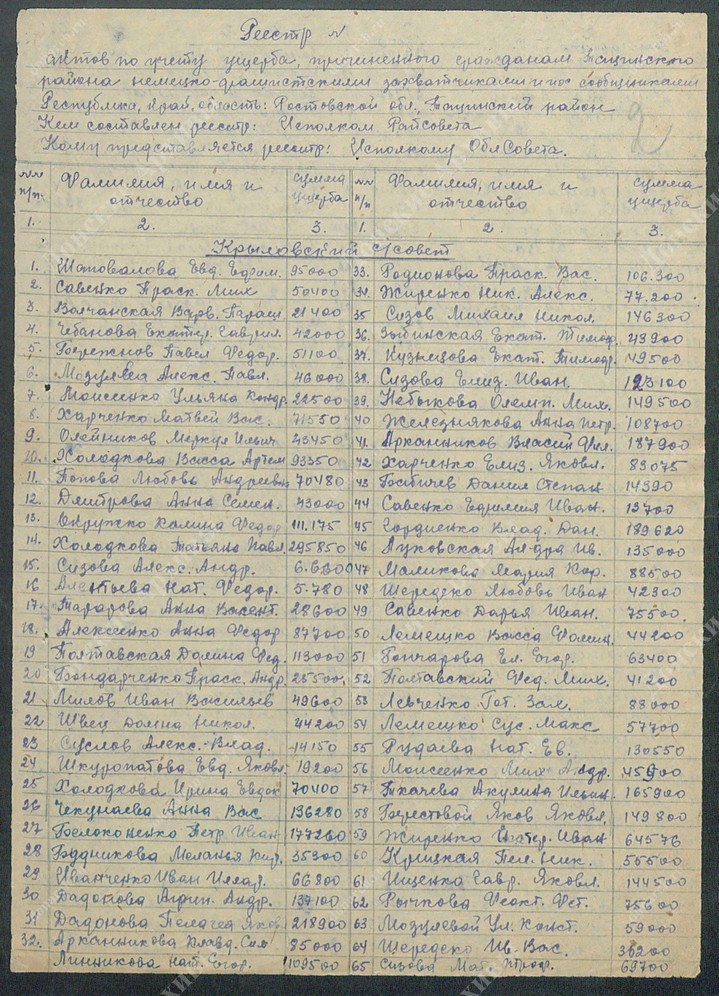 Реестр №
актов по учету ущерба, причиненного гражданам Тацинского
района немецко-фашистскими захватчиками и их сообщниками
Республика, край, область: Ростовской обл., Тацинский район
Кем составлен реестр: Исполком Райсовета
Кому представляется реестр: Исполкому ОблСовета.
2
№№ п/п. Фамилия, имя и отчество Сумма ущерба №№ п/п Фамилия, имя и отчество Сумма ущерба
1. 2. 3. 1. 2. 3.
Крыловский с/совет
1. Шаповалова Евд. Ефим. 95000 33. Родионова Праск. Вас. 106.300
2. Савенко Праск. Мих 50400 34. Жиренко Ник. Алекс. 77.200
3. Волчанская Варв. 21400 35 Сизов Михаил Никол. 146300
4. Чебанова Екатер. Гаврил. 42000 36. Екат. Тимоф. 43900
5. Бережнов Павел Федор. 51100 37. Кузнецова Екат. Тимоф. 49500
6. Мозулева Алекс. Павл. 46000 38. Сизова Елиз. Иван. 123100
7. Моисеенко Ульяна Кондр. 22500 39. Небыкова Олимп. Мих. 149500
8. Харченко Матвей Вас. 71550 40 Железнякова Анна Петр. 108700
9. Олейников Меркул Ильич 43450 41. Арканников Власий Фил. 187900
10. Холодкова Васса Артем 93350 42 Харченко Елиз. Яковл. 83075
11. Попова Любовь Андреевна 70480 43 Даниил Степан 14390
12. Дмитрова Анна Семен. 43000 44 Савенко Ефимия Иван. 13700
13. Окружко Калина Федор 111.175 45 Гордиенко Влад. Дан. 189620
14. Холодкова Татьяна Павл. 295850 46 Луховская Ал-дра Ив. 135000
15. Сизова Алекс. Андр. 6.660 47 Маликова Мария Кор. 88500
16 Нат. Федор. 5.780 48 Шередеко Любовь Иван 42300
17. Тарарова Анна Викент. 28600 49 Савенко Дарья Иван. 75500.
18. Алексеенко Анна Федор 87700 50 Лемешко Васса Фомин. 44200
19 Полтавская Домна Фед. 113000 51 Гончарова Ел. Егор. 63400
20 Бондарченко Праск. Андр. 25500. 52 Полтавский Фед. Мих. 41200
21 Милов Иван Васильев 49600 53 Левченко Гот. Зах. 88000
22 Швец Домна Никол. 44200 54 Лемешко Сус. Макс 57700
23 Суслов Алекс. Влад. 14150 55 Рудаева Нат. Ев. 130550
24 Шкуропатова Евд. Яковл. 19200 56 Моисеенко Мих Андр. 45900
25 Холодкова Ирина Евдок 70400 57 Ткачева Акулина Ильин. 165900
26 Чекунаева Анна Вас 136280 58 Берестовой Яков Яковл. 149800
27 Белоконенко Петр Иван 177260 59 Жиренко Екатер. Иван 64576
28 Будникова Меланья Кир. 55300 60 Крицкая Пел. Ник. 55500
29 Иванченко Иван Илар. 66300 61 Ищенко Гавр. Яковл. 144500
30 Дадонова Агрип. Андр. 137100 62 Рычкова Феокт. Фет. 75600
31 Дадонова Пелагея Яков. 218900 63 Мозулевой Ул. Конст. 59000
32. Арканникова Клавд. Сам 85000 64 Шередеко Ив. Вас. 36200
Линникова Нат. Егор. 109500 65 Сизова Мат. Троф. 69700